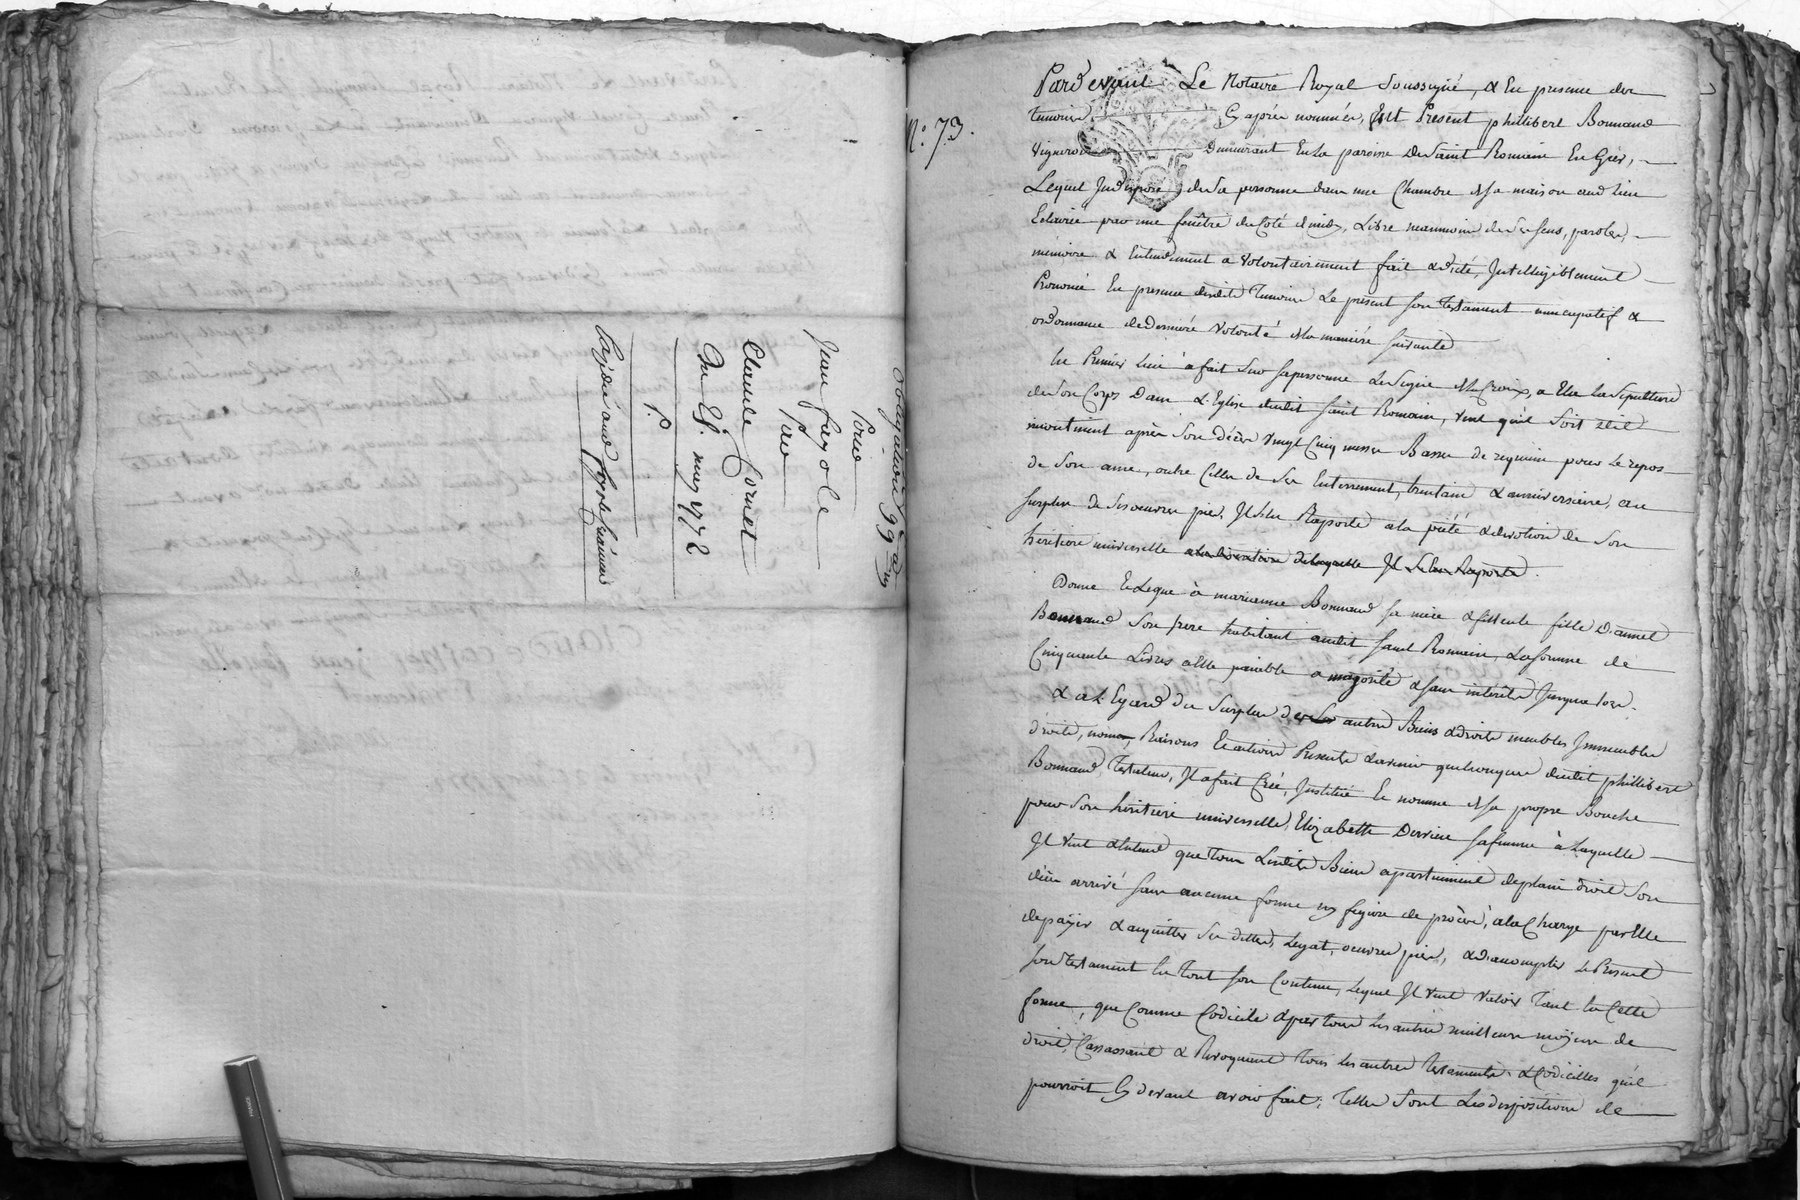 obligation 99
Pour
Jean fayolle
Pere
Claude Cornet
Du 28. may 1772
P.
N.° 73.
Pardevant Le Notaire Royal Soussigné, & En presence des
Temoins Cy aprés nommés, Est Present phillibert Bonnand
Vigneron Demeurant En la paroisse De Saint Romain En Gier,
Lequel Indisposé de sa personne dans une Chambre de sa maison aud. lieu
Eclairée par une fenêtre du Coté de midy, Libre neanmoins de ses sens, paroles,
memoire & Entendement a volontairement fait & dicté, Intelligiblement
Prononcé En presence desdits Temoins Le present son testament nuncupatif &
ordonnance de derniére volonté de la maniére suivante
En Premier Lieu à fait sur sa personne Le signe de la Croix, a Elu La Sepulture
de son Corps Dans L'Eglise dudit Saint Romain, veut qu'il soit dit
incontinent aprés son décés vingt Cinq messes Basses de requiem pour le repos
de son ame, outre Celles de son Enterrement, trentaine & anniversaire, au
surplus de ses oeuvres pies, Il s'en Raporte a la pieté & devotion de son
heritiere universelle Il s'en Raporte.
Donne & Legue à marianne Bonnand sa niéce & filleule fille D'annet
Bonnand son frere habitant audit Saint Romain, La somme de
Cinquante Livres a Elle paiable a majorité & sans intérêts Jusqu'alors.
& a L'Egard du surplus de ses autres Biens & droits meubles Immeubles
droits, noms, Raisons & actions Presents & avenir quelconques dudit phillibert
Bonnand testateur, Il a fait Créé, Institué & nommé de sa propre Bouche
pour son héritiere universelle, Elizabeth Dervieu sa femme à Laquelle
Il veut & Entend que tous Lesdits Biens apartiennent de plain droit son
décés arrivé sans aucune forme ny figure de procés, a la Charge par Elle
de payer & acquitter ses dettes, Legat, oeuvres pies, & d'accomplir Le Present
son testament En tout son Contenu, Lequel Il veut valoir tant En Cette
forme, que Comme Codicile & par tous Les autres meilleurs moyens de
droit, Cassassant & Revoquant tous Les autres testaments & Codicilles qu'il
pourroit Cy devant avoir fait; telles sont Les dispositions de